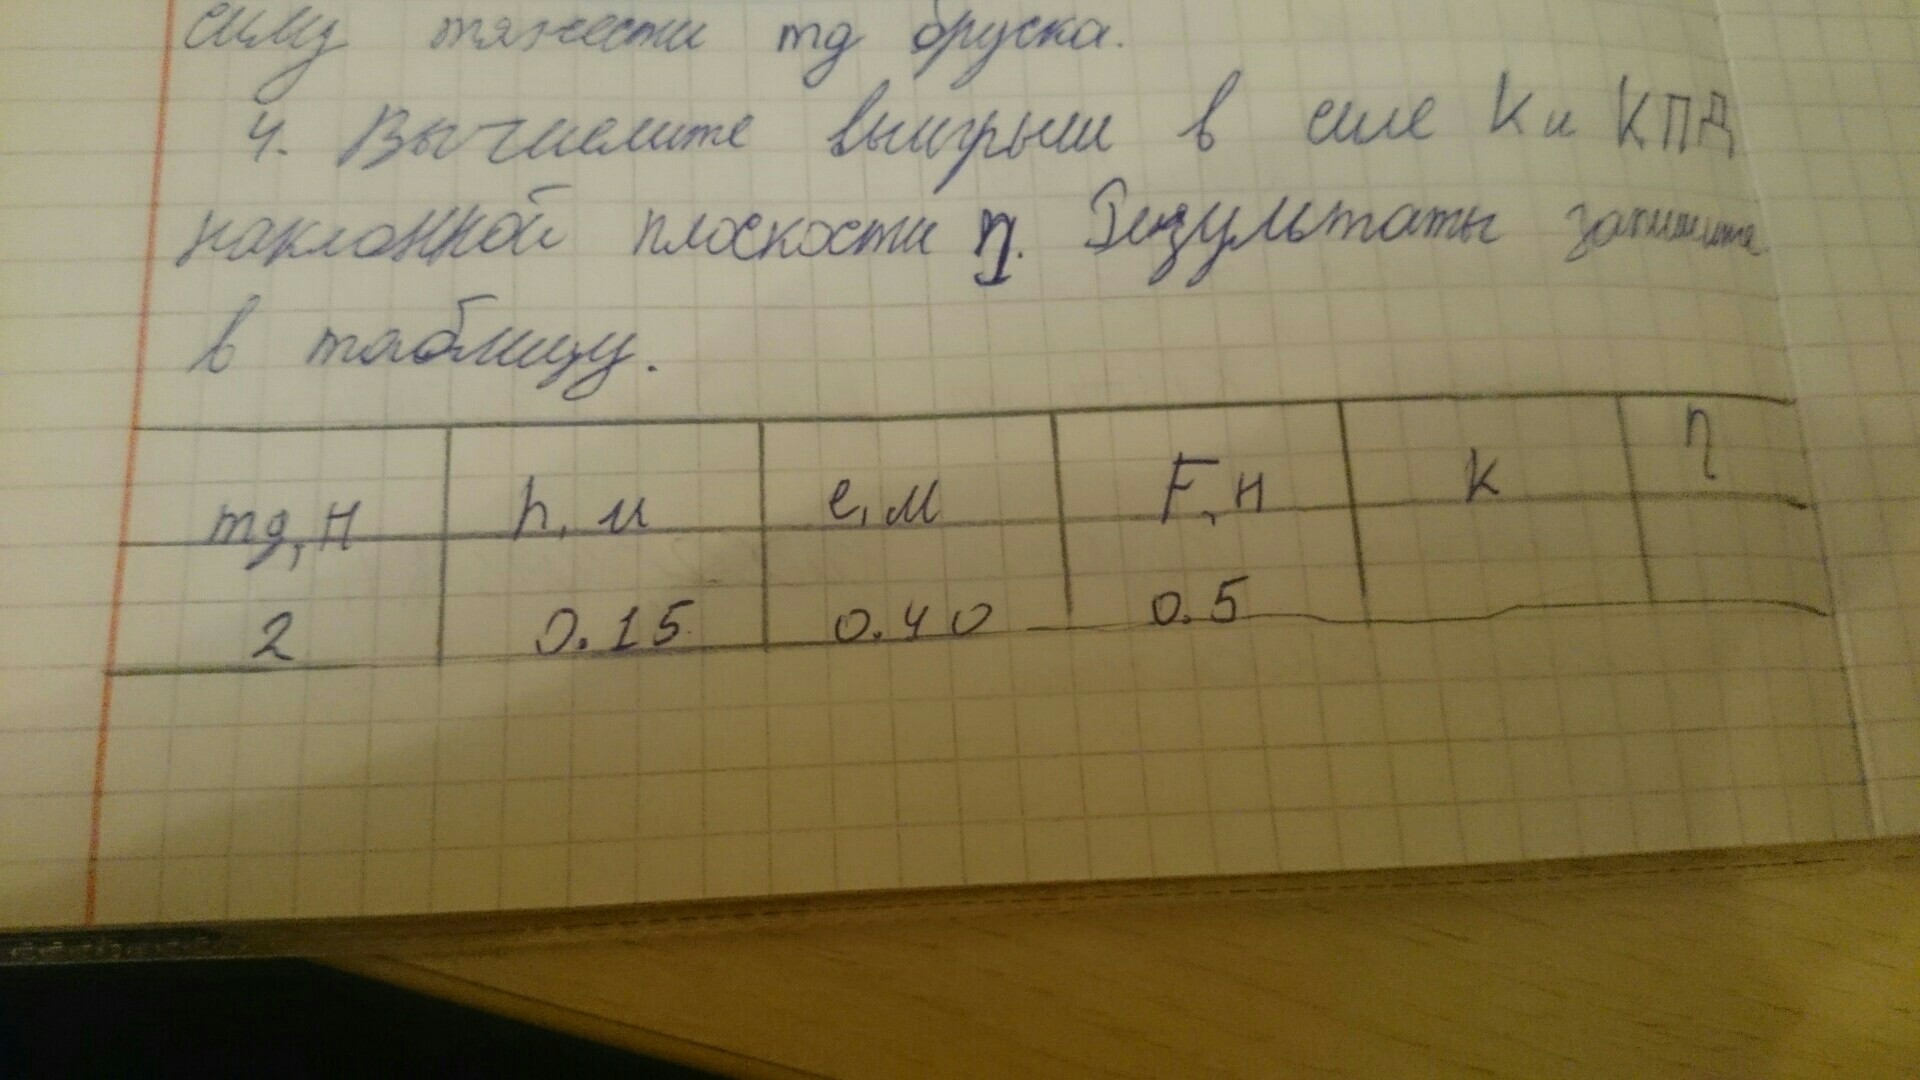 силу тяжести mg бруска.
4. Вычислите выигрыш в силе К и КПД
наклонной плоскости η. Результаты запишите
в таблицу.
mg, Н h, м e, м F, н К η
2 0.15 0.40 0.5